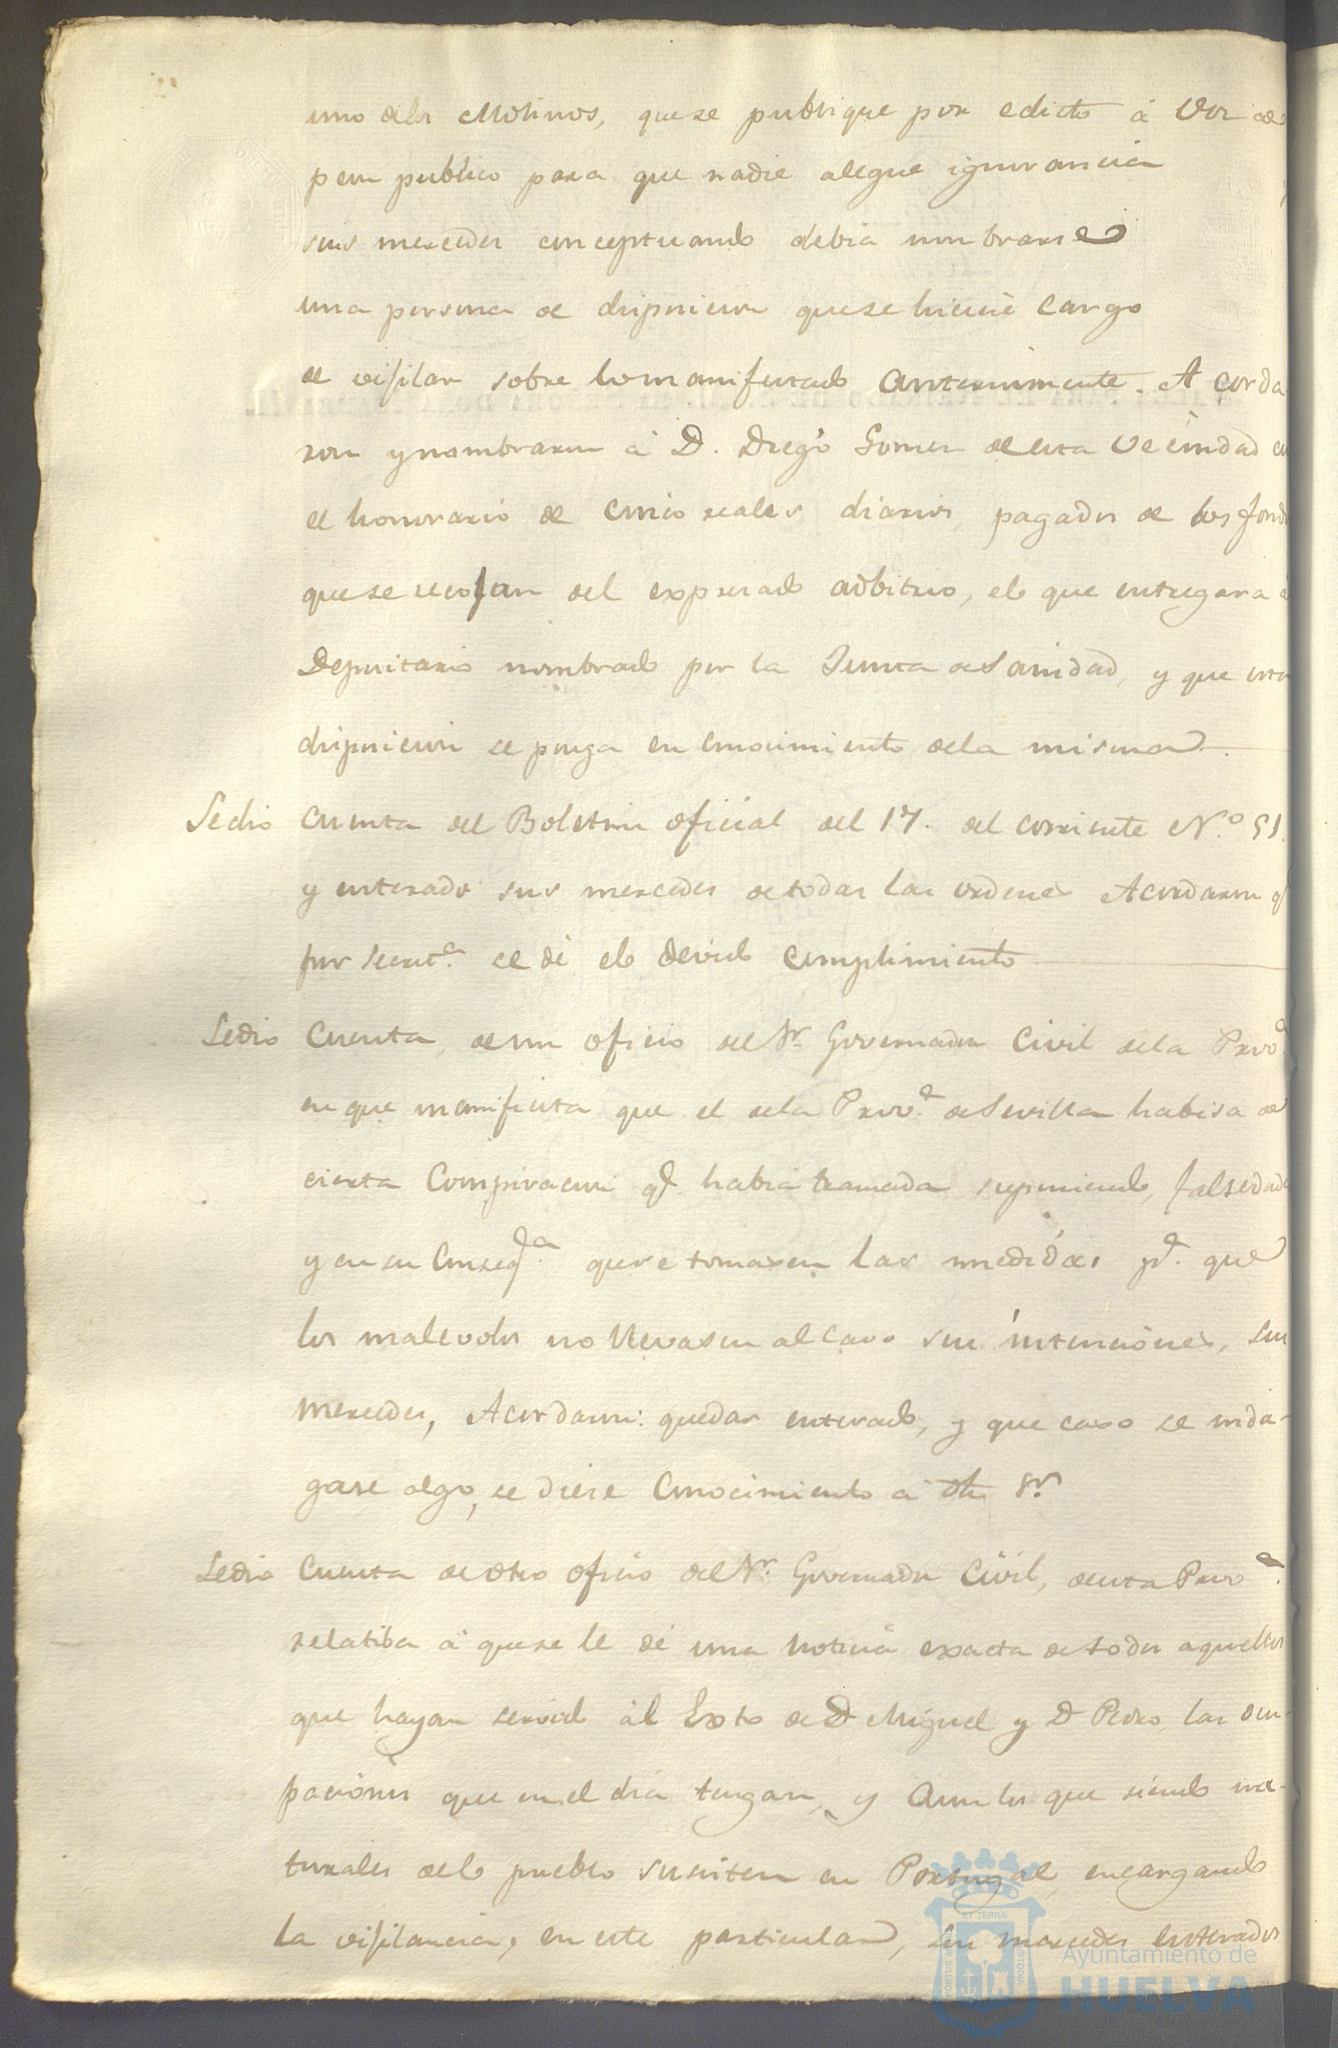 uno de los Molinos, que se publique por edicto á Voz de
pon publico para que nadie alegue ignorancia
sus mercedes conceptuando debia nombrarse
una persona de disposicion que se hiciese cargo
de vijilar sobre lo manifestado anteriormente. Acorda
ron y nombraron á D. Diego Gomez de esta Vecindad con
el honorario de cinco reales diarios, pagados de los fondos
que se recojan del expresado adbitrio, el que entregara á
Depositario nombrado por la Junta de Sanidad, y que esta
disposicion se ponga en conocimiento de la misma
Se dio Cuenta del Boletin oficial del 17. del corriente N.º 51.
y enterados sus mercedes de todas las ordenes Acordaron q
por Secret.ª se dé el devido cumplimiento
Se dio Cuenta de un oficio del Sr. Governador Civil de la Prov.ª
en que manifiesta que el de la Prov.ª de Sevilla habisa de
cierta Conspiracion q.e habia tramada suponiendo, falsedades
y en su Conseq.ª que se tomasen las medidas p.ª que
los malevolos no llevasen al cavo sus intenciones, sus
mercedes, Acordaron: quedar enterado, y que caso se inda-
gase algo, se diese Conocimiento á dho Sr.
Se dio Cuenta de otro oficio del Sr. Governador Civil, de esta Prov.ª
relatiba á que se le dé una noticia exacta de todos aquellos
que hayan servido al Exto de D Miguel y D Pedro, las ocu-
paciones que en el dia tengan, y aun los que siendo na-
turales de lo pueblo susisten en Portugal, encargando
la vijilancia, en este particular, sus mercedes enterados
Ayuntamiento de
HUELVA